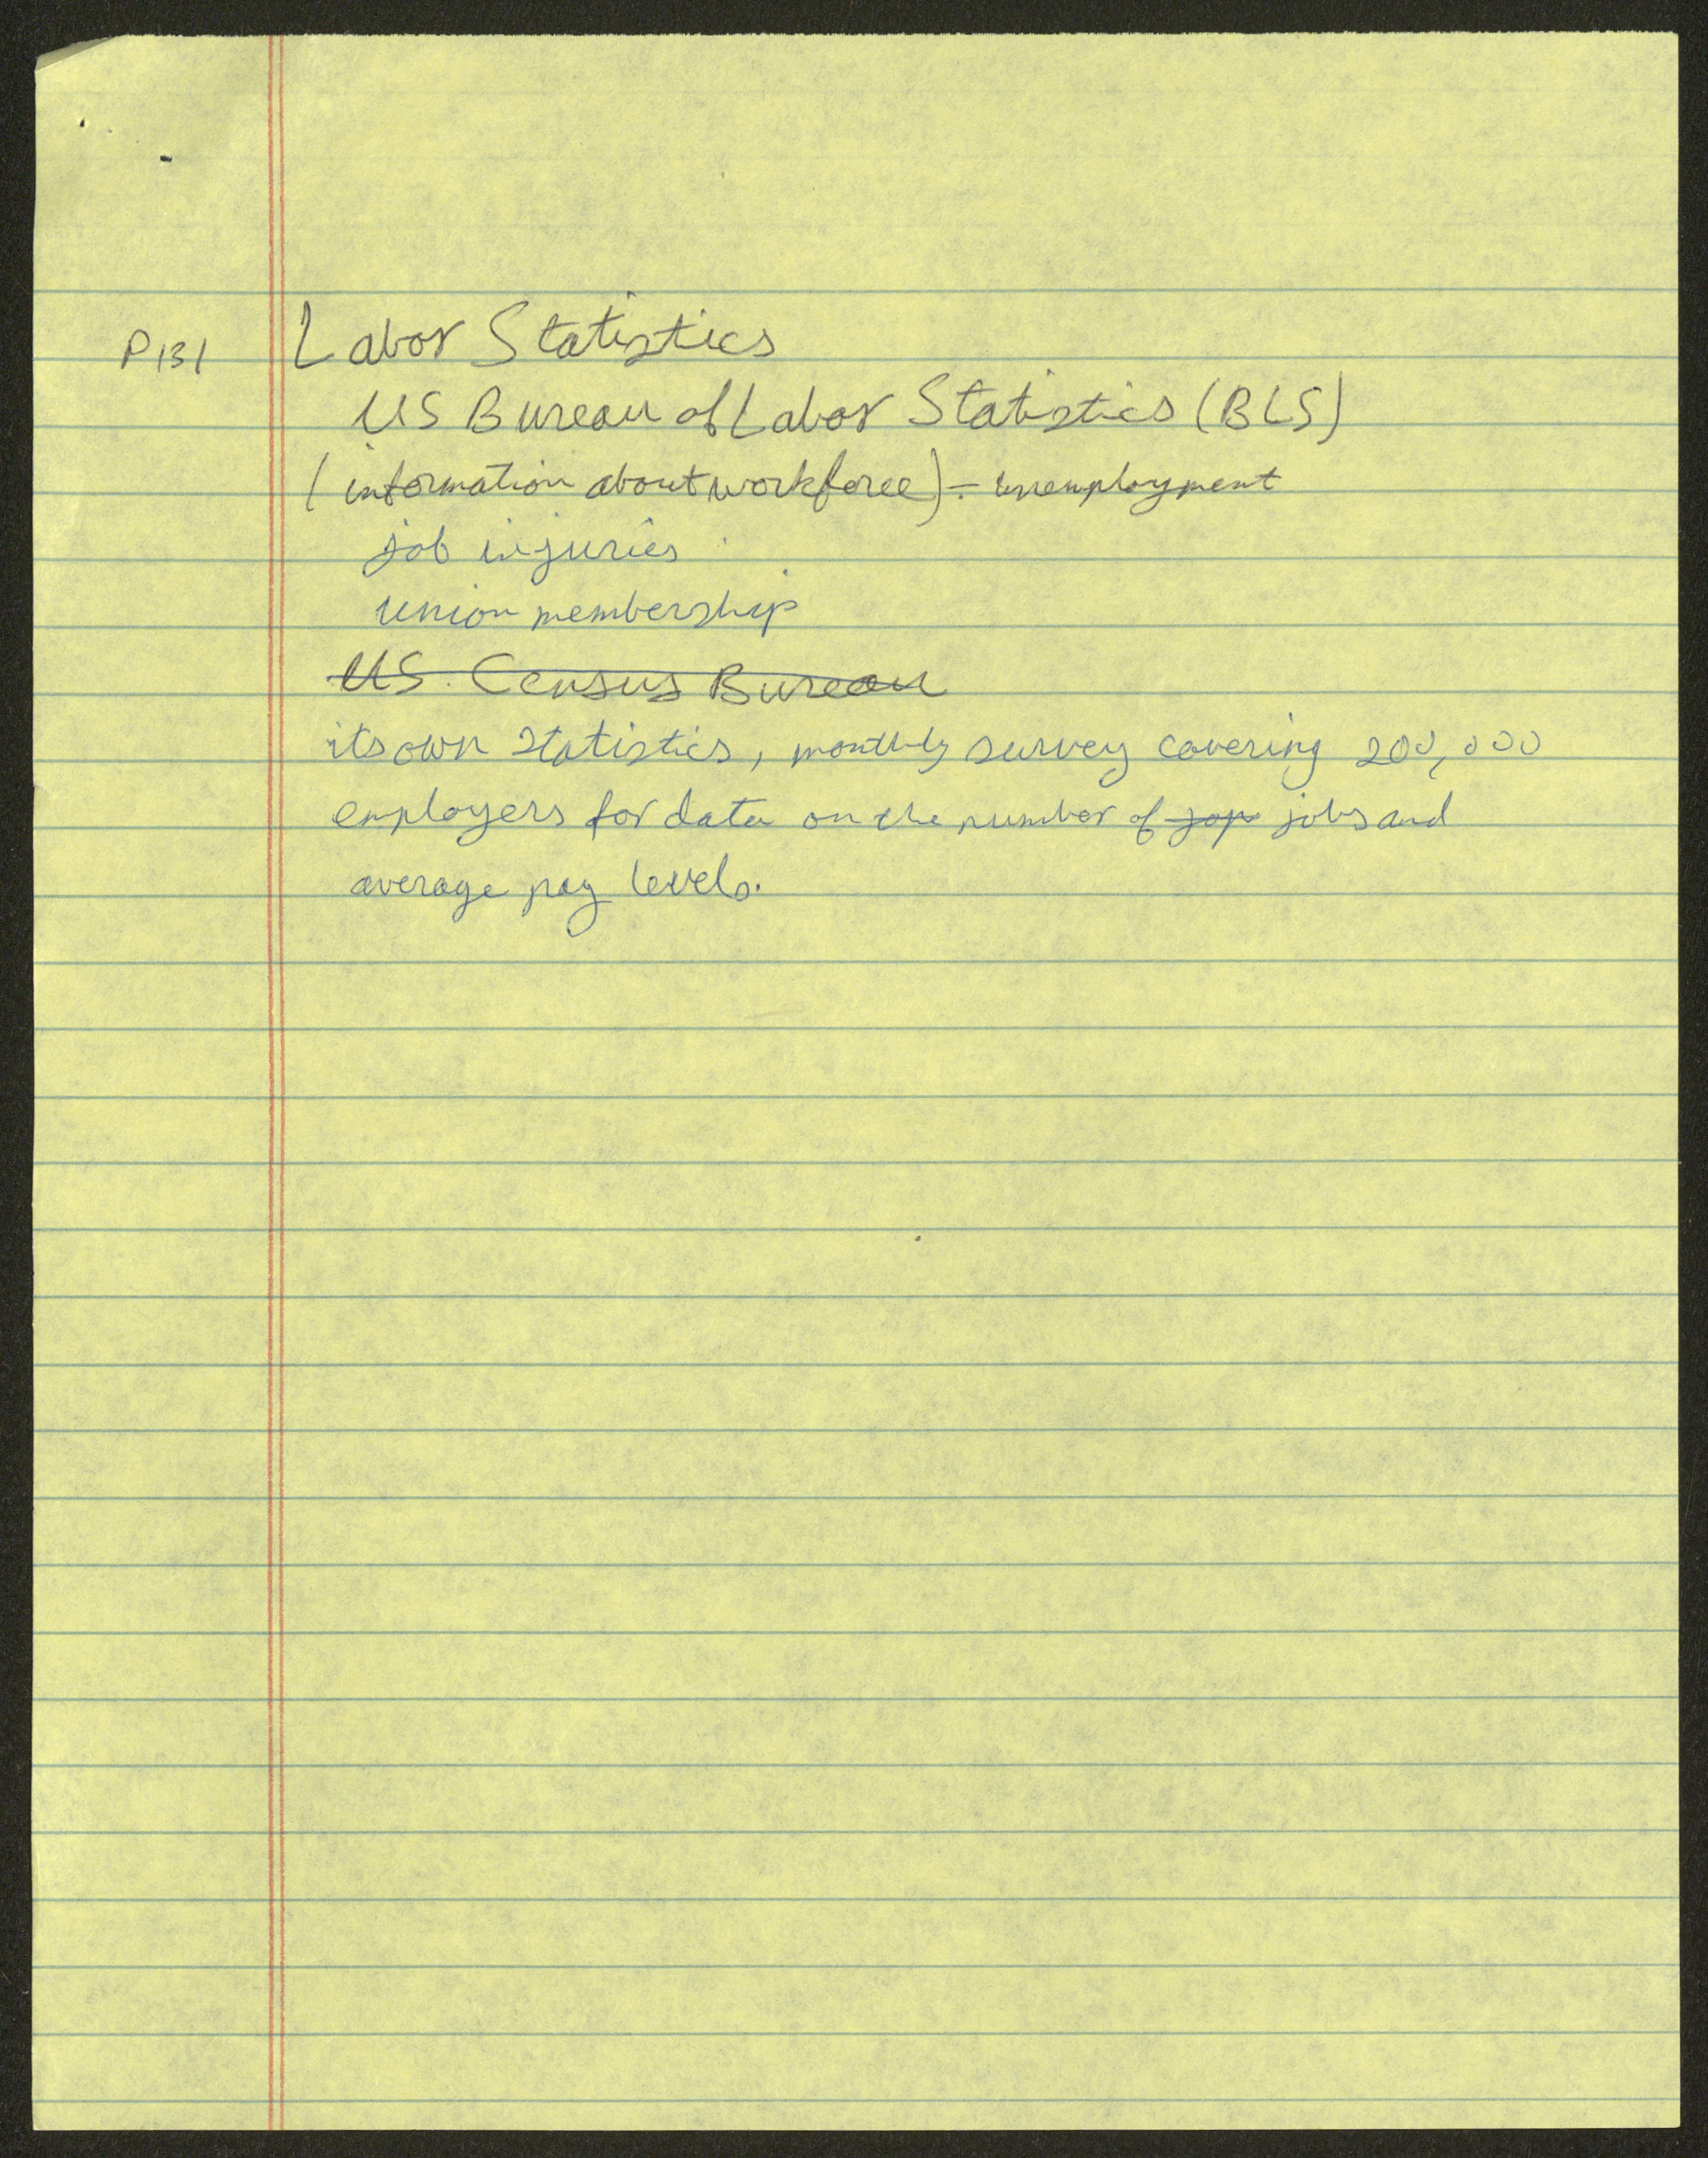 P131 Labor Statistics
US Bureau of Labor Statistics (BLS)
(information about workforce) - unemployment
job injuries
union membership
US Census Bureau
its own statistics, monthly survey covering 200,000
employers for data on the number of jop jobs and
average pay levels.